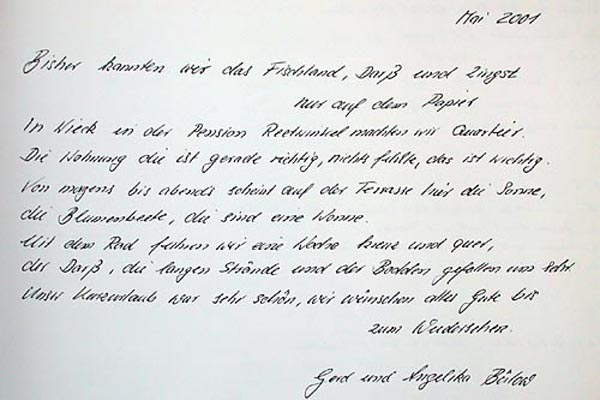 Mai 2001
Bisher kannten wir das Fischland, Darß und Zingst
nur auf dem Papier
In Wieck in der Pension Reetwinkel machten wir Quartier.
Die Wohnung die ist gerade richtig, nichts fehlte, das ist wichtig.
Von morgens bis abends scheint auf der Terrasse hier die Sonne,
die Blumenbeete, die sind eine Wonne.
Mit dem Rad fuhren wir eine Woche kreuz und quer,
der Darß, die langen Strände und der Bodden gefallen uns sehr.
Unser Kurzurlaub war sehr schön, wir wünschen alles Gute bis
zum Wiedersehen.
Gerd und Angelika Bülow